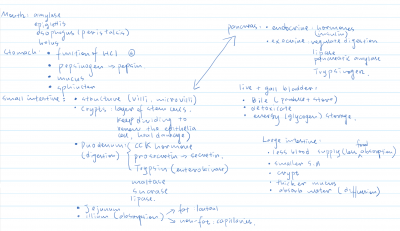 Mouth: amylase
epiglotis
esophagus (peristalsis)
bolus
Stomach: • function of HCl
• pepsinogen → pepsin
• mucus
• sphincter
Small intestine: • structure (villi, microvilli)
• Crypts: layer of stem cells.
keep dividing to
renew the epithelia
cell (viral damage)
• Duodenum: • CCK hormone
(digestion) prosecretin → secretin,
• Trypsin (enterokinase)
maltase
sucrase
lipase.
• Jejunum → fat lacteal
• ilium (absorption) → non-fat capillaries.
pancreas: • endocrine: hormones
(insulin)
• exocrine: regulate digestion
lipase
pancreatic amylase
Trypsinogen.
live + gall bladder:
• Bile (produce + store)
• detoxicate
• energy (glycogen) storage.
Large intestine:
• less blood supply (less food absorption)
• smaller S.A
• crypt
• thicker mucus
• absorb water (diffusion)